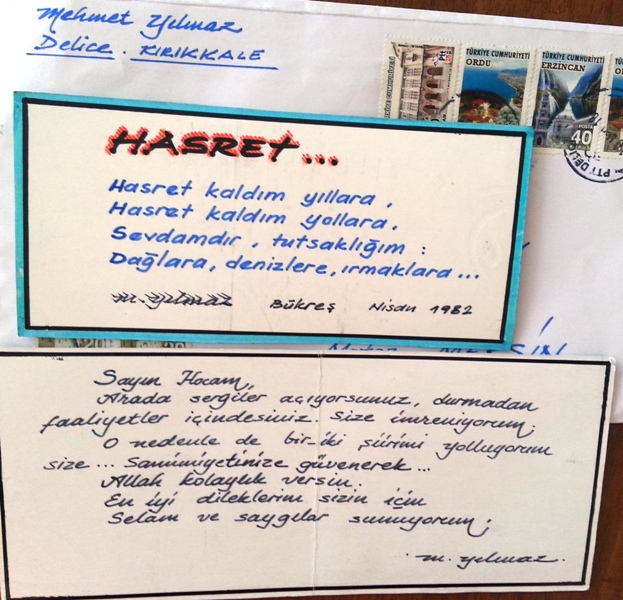 Mehmet Yılmaz
Delice. KIRIKKALE
TÜRKİYE CUMHURİYETİ
ORDU
TÜRKİYE CUMHURİYETİ
ERZİNCAN
40
HASRET...
Hasret kaldım yıllara,
Hasret kaldım yollara,
Sevdamdır, tutsaklığım:
Dağlara, denizlere, ırmaklara...
M. Yılmaz Bükreş Nisan 1982
Sayın Hocam,
Arada sergiler açıyorsunuz, durmadan
faaliyetler içindesiniz size imreniyorum;
O nedenle de bir-iki şiirimi yolluyorum
size... Samimiyetinize güvenerek...
Allah kolaylık versin.
En iyi dileklerim sizin için
Selam ve saygılar sunuyorum;
M. Yılmaz.